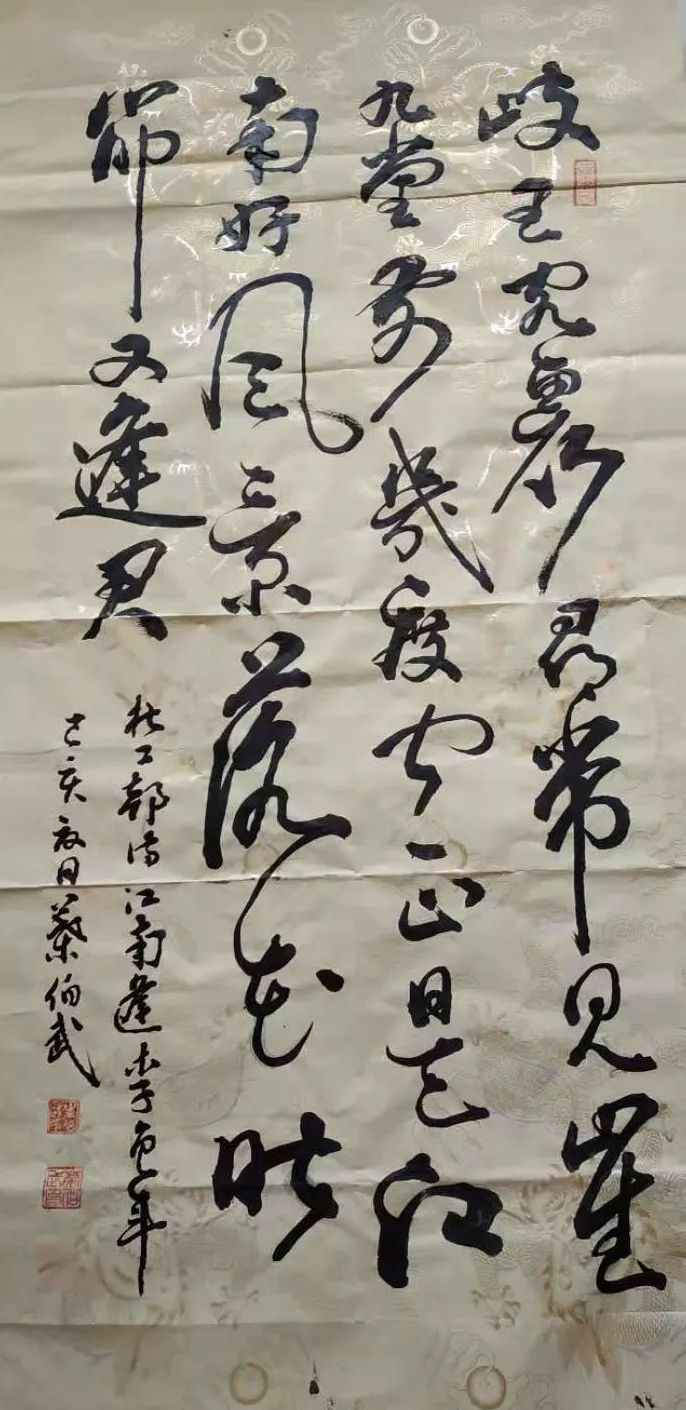 歧王宅裏尋常見崔
九堂前幾度聞正是江
南好風景落花時
節又逢君
杜工部詩江南逢李龜年
己亥夏日伯武